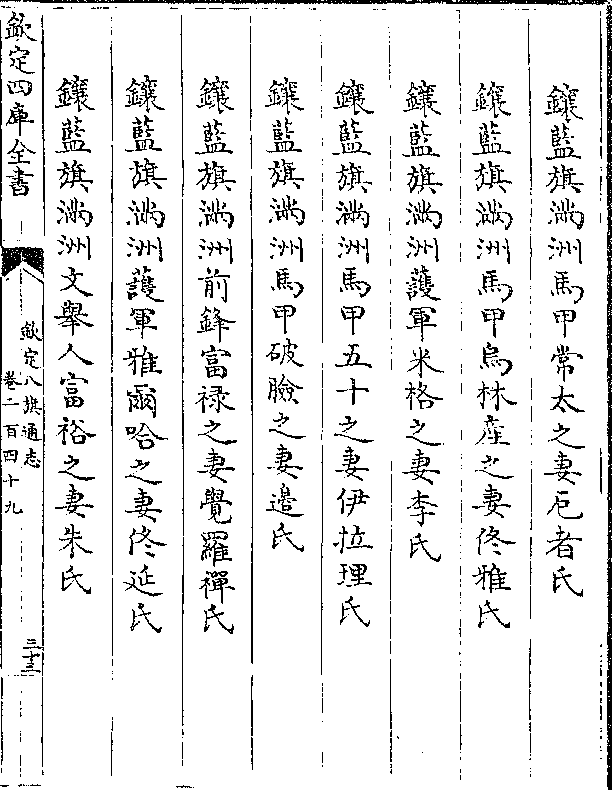 鑲藍旗滿洲馬甲常太之妻戹者氏
鑲藍旗滿洲馬甲烏林産之妻佟雅氏
鑲藍旗滿洲護軍米格之妻李氏
鑲藍旗滿洲馬甲五十之妻伊拉理氏
鑲藍旗滿洲馬甲破臉之妻邉氏
鑲藍旗滿洲前鋒富禄之妻覺羅禪氏
鑲藍旗滿洲護軍雅爾哈之妻佟延氏
鑲藍旗滿洲文舉人富裕之妻朱氏
欽定四庫全書
欽定八旗通志
卷二百四十九
三十三